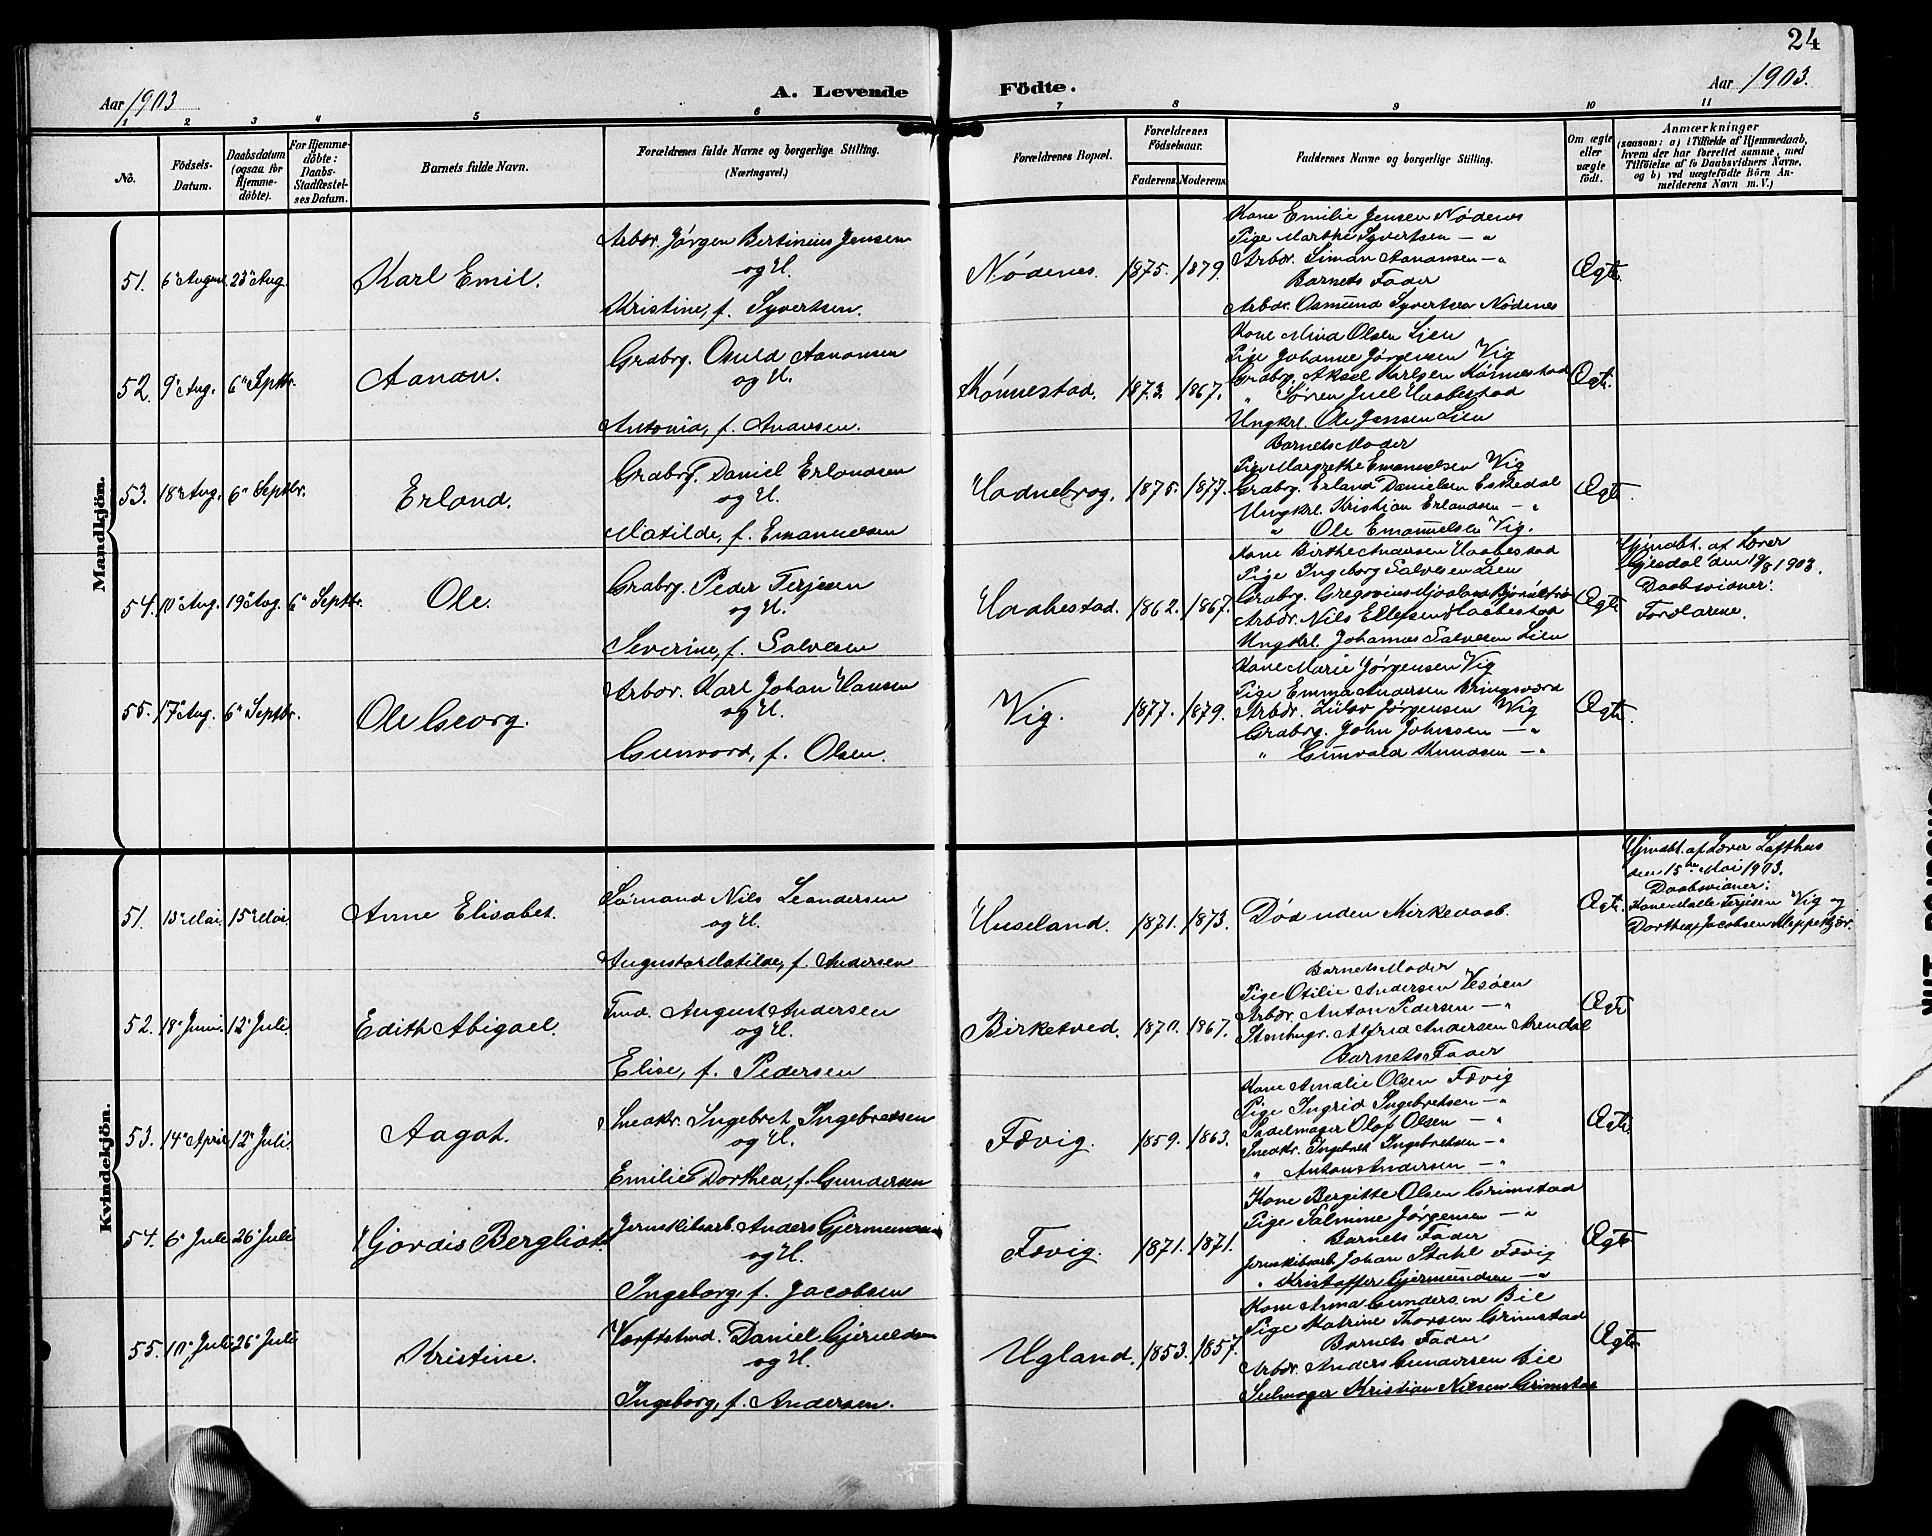 24
Aar 1903
A. Levende
Födte.
Aar 1903.
1 2 3 4 5 6 7 8 9 10 11
No.
Födsels-
Datum.
Daabsdatum
(ogsaa for
Hjemme-
döbte).
For Hjemme-
döbte:
Daabs-
Stadfæstel-
ses Datum.
Barnets fulde Navn.
Forældrenes fulde Navne og borgerlige Stilling.
(Næringsvei.)
Forældrenes Bopæl.
Forældrenes
Födselsaar.
Faderens
Moderens
Faddernes Navne og borgerlige Stilling.
Om ægte
eller
uægte
födt.
Anmærkninger
(saasom: a) i Tilfælde af Hjemmedaab,
hvem der har forrettet samme, med
Tilföielse af to Daabsvidners Navne,
og b) ved uægtefödte Börn An-
melderens Navn m. V.)
Mandkjön.
51. 6te August 23de Aug. Karl Emil.
Arbdr. Jørgen Bertinius Jensen
og H.
Kristine, f. Syvertsen.
Nødenes. 1875. 1879.
Kone Emilie Jensen Nødenes
Pige Marthe Syvertsen — "
Arbdr. Simon Aanonsen — "
Barnets Fader
Arbdr. Osmund Syvertsen Nødenes
Ægte.
52. 9de Aug. 6te Septbr. Aanon.
Gradbrg. Osuld Aanonsen
og H.
Antonia, f. Andersen.
Rønnestad. 1873. 1867.
Kone Mina Olsen Lien
Pige Johanne Jørgensen Vig
Gradbrg. Aksel Karlsen Rønnestad
" Søren Juel Haabestad
Ungkrl. Ole Jensen Lien
Ægte.
53. 18de Aug. 6te Septbr. Erland.
Gradbrg. Daniel Erlandsen
og H.
Matilde, f. Emanuelsen
Hadnebrog. 1875. 1877.
Barnets Moder
Pige Margrethe Emanuelsen Vig
Gradbrg. Erland Danielsen Eskedal
Ungkrl. Kristian Erlandsen — "
" Ole Emanuelsen Vig.
Ægte.
54. 10de Aug. 19de Aug. 6te Septbr. Ole.
Gradbrg. Peder Terjesen
og H.
Severine, f. Salvesen
Haabestad. 1862. 1867.
Kone Birthe Andersen Haabestad
Pige Ingeborg Salvesen Lien
Arbdr. Nils Ellefsen Haabestad
Ungkrl. Johannes Salvesen Lien
Ægte
Hjmdbt. af Lærer
Gjesdal den 19/8 1903.
Daabsvidner:
Forældrene.
55. 17de Aug. 6te Septbr. Ole Georg.
Arbdr. Karl Johan Hansen
og H.
Gunvord, f. Olsen.
Vig. 1877. 1879.
Kone Marie Jørgensen Vig
Pige Emma Andersen Bringsværd
Arbdr. Lulov Jørgensen Vig
Gradbrg. John Johnsen — "
" Gunvald Knudsen — "
Ægte.
Kvindekjön.
51. 13de Mai. 15de Mai. Anne Elisabet.
Sømand Nils Leandersen
og H.
Augusta Matilde, f. Andersen
Huseland. 1871. 1873.
Død uden Kirkedaab.
Ægte.
Hjmdbt. af Lærer Lofthus
den 15de Mai 1903.
Daabsvidner:
Kone Malle Terjesen Vig og
Dorthea Jacobsen Kleppekjær.
52. 18de Juni. 12te Juli. Edith Abigael.
Tmd. August Andersen
og H.
Elise, f. Pedersen
Birketved. 1870. 1867.
Barnets Moder
Pige Otilie Andersen Vesøen
Arbdr. Anton Pedersen — "
Stenhugr. Alfred Andersen Arendal
Barnets Fader
Ægte
53. 14de April 12te Juli. Aagot.
Snedkr. Ingebret Ingebretsen
og H.
Emilie Dorthea, f. Gundersen
Fævig. 1859. 1863.
Kone Amalie Olsen Fævig
Pige Ingrid Ingebretsen — "
Sadelmager Olaf Olsen — "
Snedkr. Ingebret Ingebretsen — "
" Anton Andersen — "
Ægte.
54. 6te Juli 26de Juli Hjordis Bergliot.
Jernskibsarb. Anders Gjermundsen
og H.
Ingeborg, f. Jacobsen
Fævig. 1871. 1871.
Kone Bergitte Olsen Grimstad
Pige Salmine Jørgensen — "
Barnets Fader
Jernskibsarb. Johan Stahl Fævig
" Kristoffer Gjermundsen — "
Ægte
55. 10de Juli 26de Juli Kristine.
Værftstmd. Daniel Gjeruldsen
og H.
Ingeborg, f. Andersen.
Ugland. 1853. 1857.
Kone Anna Gundersen Bie
Pige Katrine Thorsen Grimstad
Barnets Fader
Arbdr. Anders Gundersen Bie
Seilmager Kristian Nilsen Grimstad
Ægte